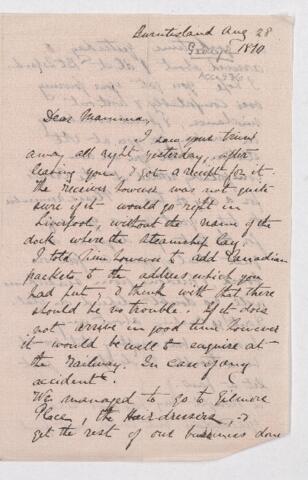 Burntisland Aug 28
1870
Dear Mamma,
I saw your trunk
away all right yesterday, after
leaving you. I got a receipt for it
the receiver however was not quite
sure if it would go right in
Liverpool, without the name of the
dock where the steamship lay
I told him however to add Canadian
packets to the address which you
had put, I think with that there
should be no trouble. If it does
not arrive in good time however
it would be well to enquire at
the Railway. In case of any
accident.
We managed to go to Gilmore
Place, the Hairdressers, &
get the rest of our business done